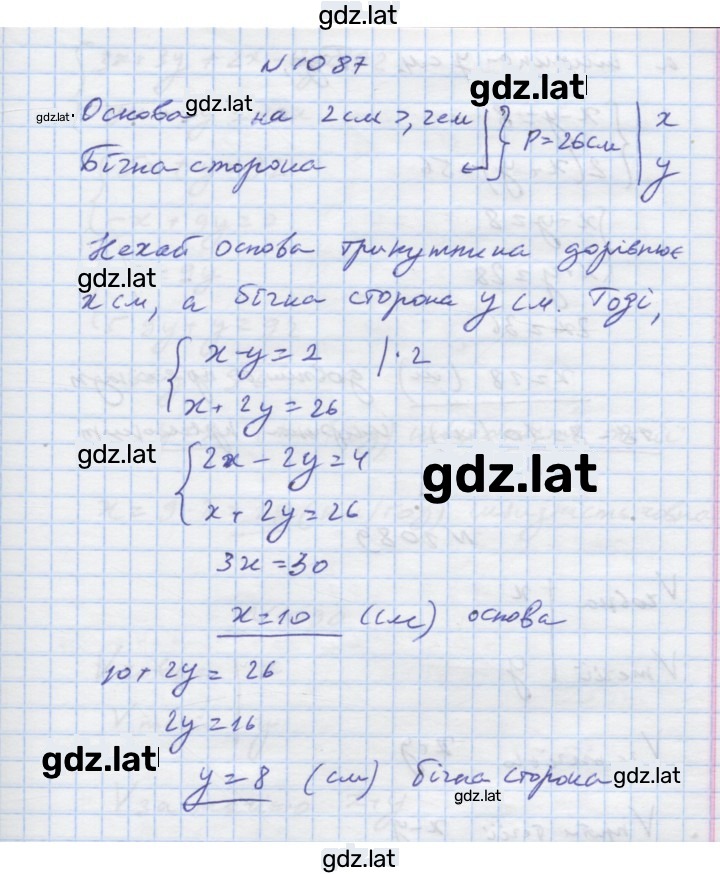 gdz.lat
N 1087
gdz.lat
gdz.lat
gdz.lat
Основа на 2 см >, чем } P=26см | x
Бічна сторона | y
Нехай основа трикутника дорівнює
gdz.lat
x см, а бічна сторона y см. Тоді,
{ x-y=2 |·2
x+2y=26
gdz.lat
gdz.lat
{ 2x-2y=4
x+2y=26
3x=30
x=10 (см) основа
10+2y=26
2y=16
gdz.lat
y=8 (см) бічна сторона
gdz.lat
gdz.lat
gdz.lat